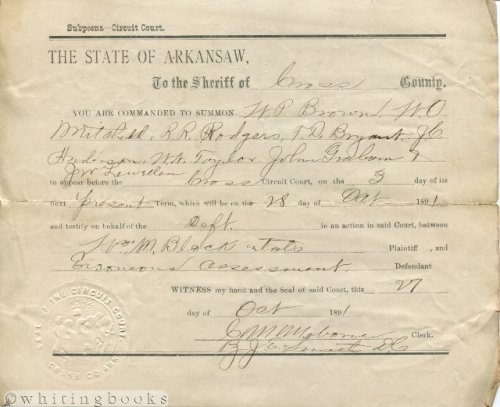 Subpoena—Circuit Court.
THE STATE OF ARKANSAW,
To the Sheriff of Cross County.
YOU ARE COMMANDED TO SUMMON W.P. Brown, W.O
Mitchell, R.R. Rodgers, T.D. Bryant, J.C
Henderson, W.W. Taylor John Graham &
J.W.
to appear before the Cross Circuit Court, on the 3 day of its
next present Term, which will be on the 28 day of Oct 1891
and testify on behalf of the Deft. in an action in said Court, between
Wm M. Block state Plaintiff, and
Erroneous assessment. Defendant
WITNESS my hand and the Seal of said Court, this 27
day of Oct 1891
Clerk.
By J.E. D.C
SEAL OF THE CIRCUIT COURT
CROSS CO ARK
©whitingbooks